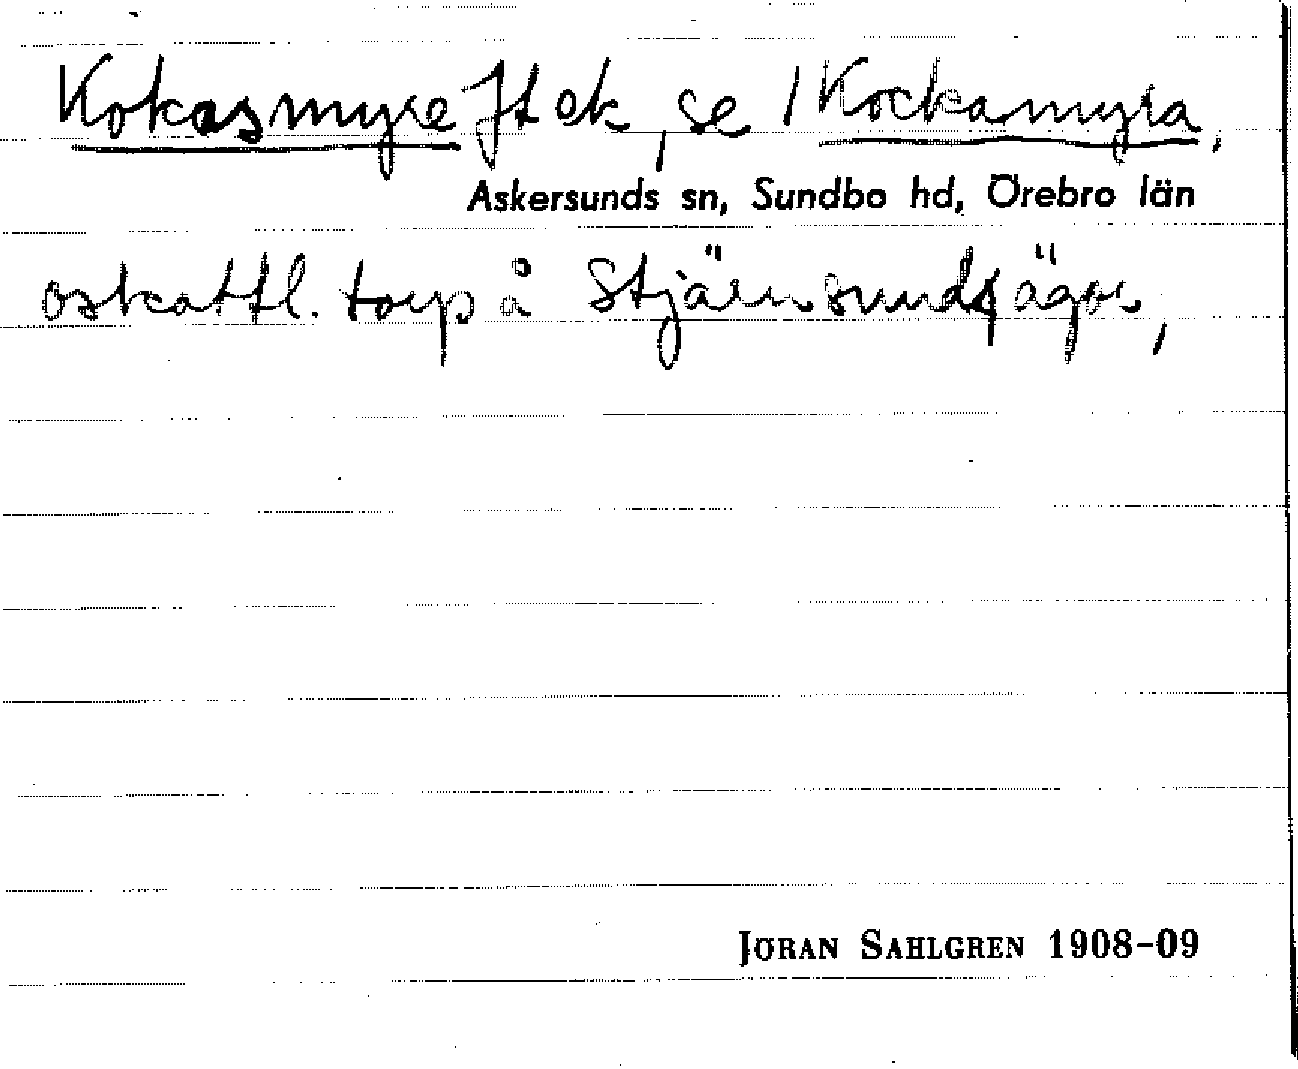 Kokasmyre Jt ek, se 1 Kockamyra,
Askersunds sn, Sundbo hd, Örebro län
oskattl. torp å Stjärnsunds ägor,
JÖRAN SAHLGREN 1908-09